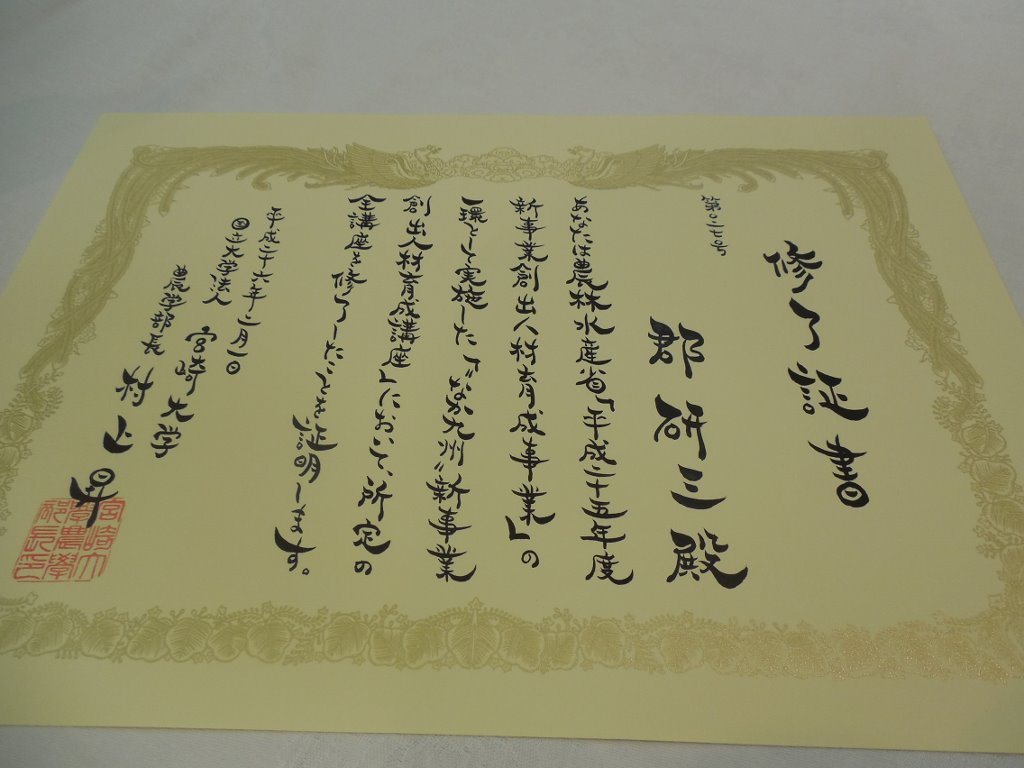 修了証書
第〇二七号
郡研三殿
あなたは農林水産省「平成二十五年度
新事業創出人材育成事業」の
一環として実施した「“なか九州”新事業
創出人材育成講座」において、所定の
全講座を修了したことを証明します。
平成二十六年二月一日
国立大学法人
宮崎大学
農学部長
村上昇
宮崎大
学農學
部長印